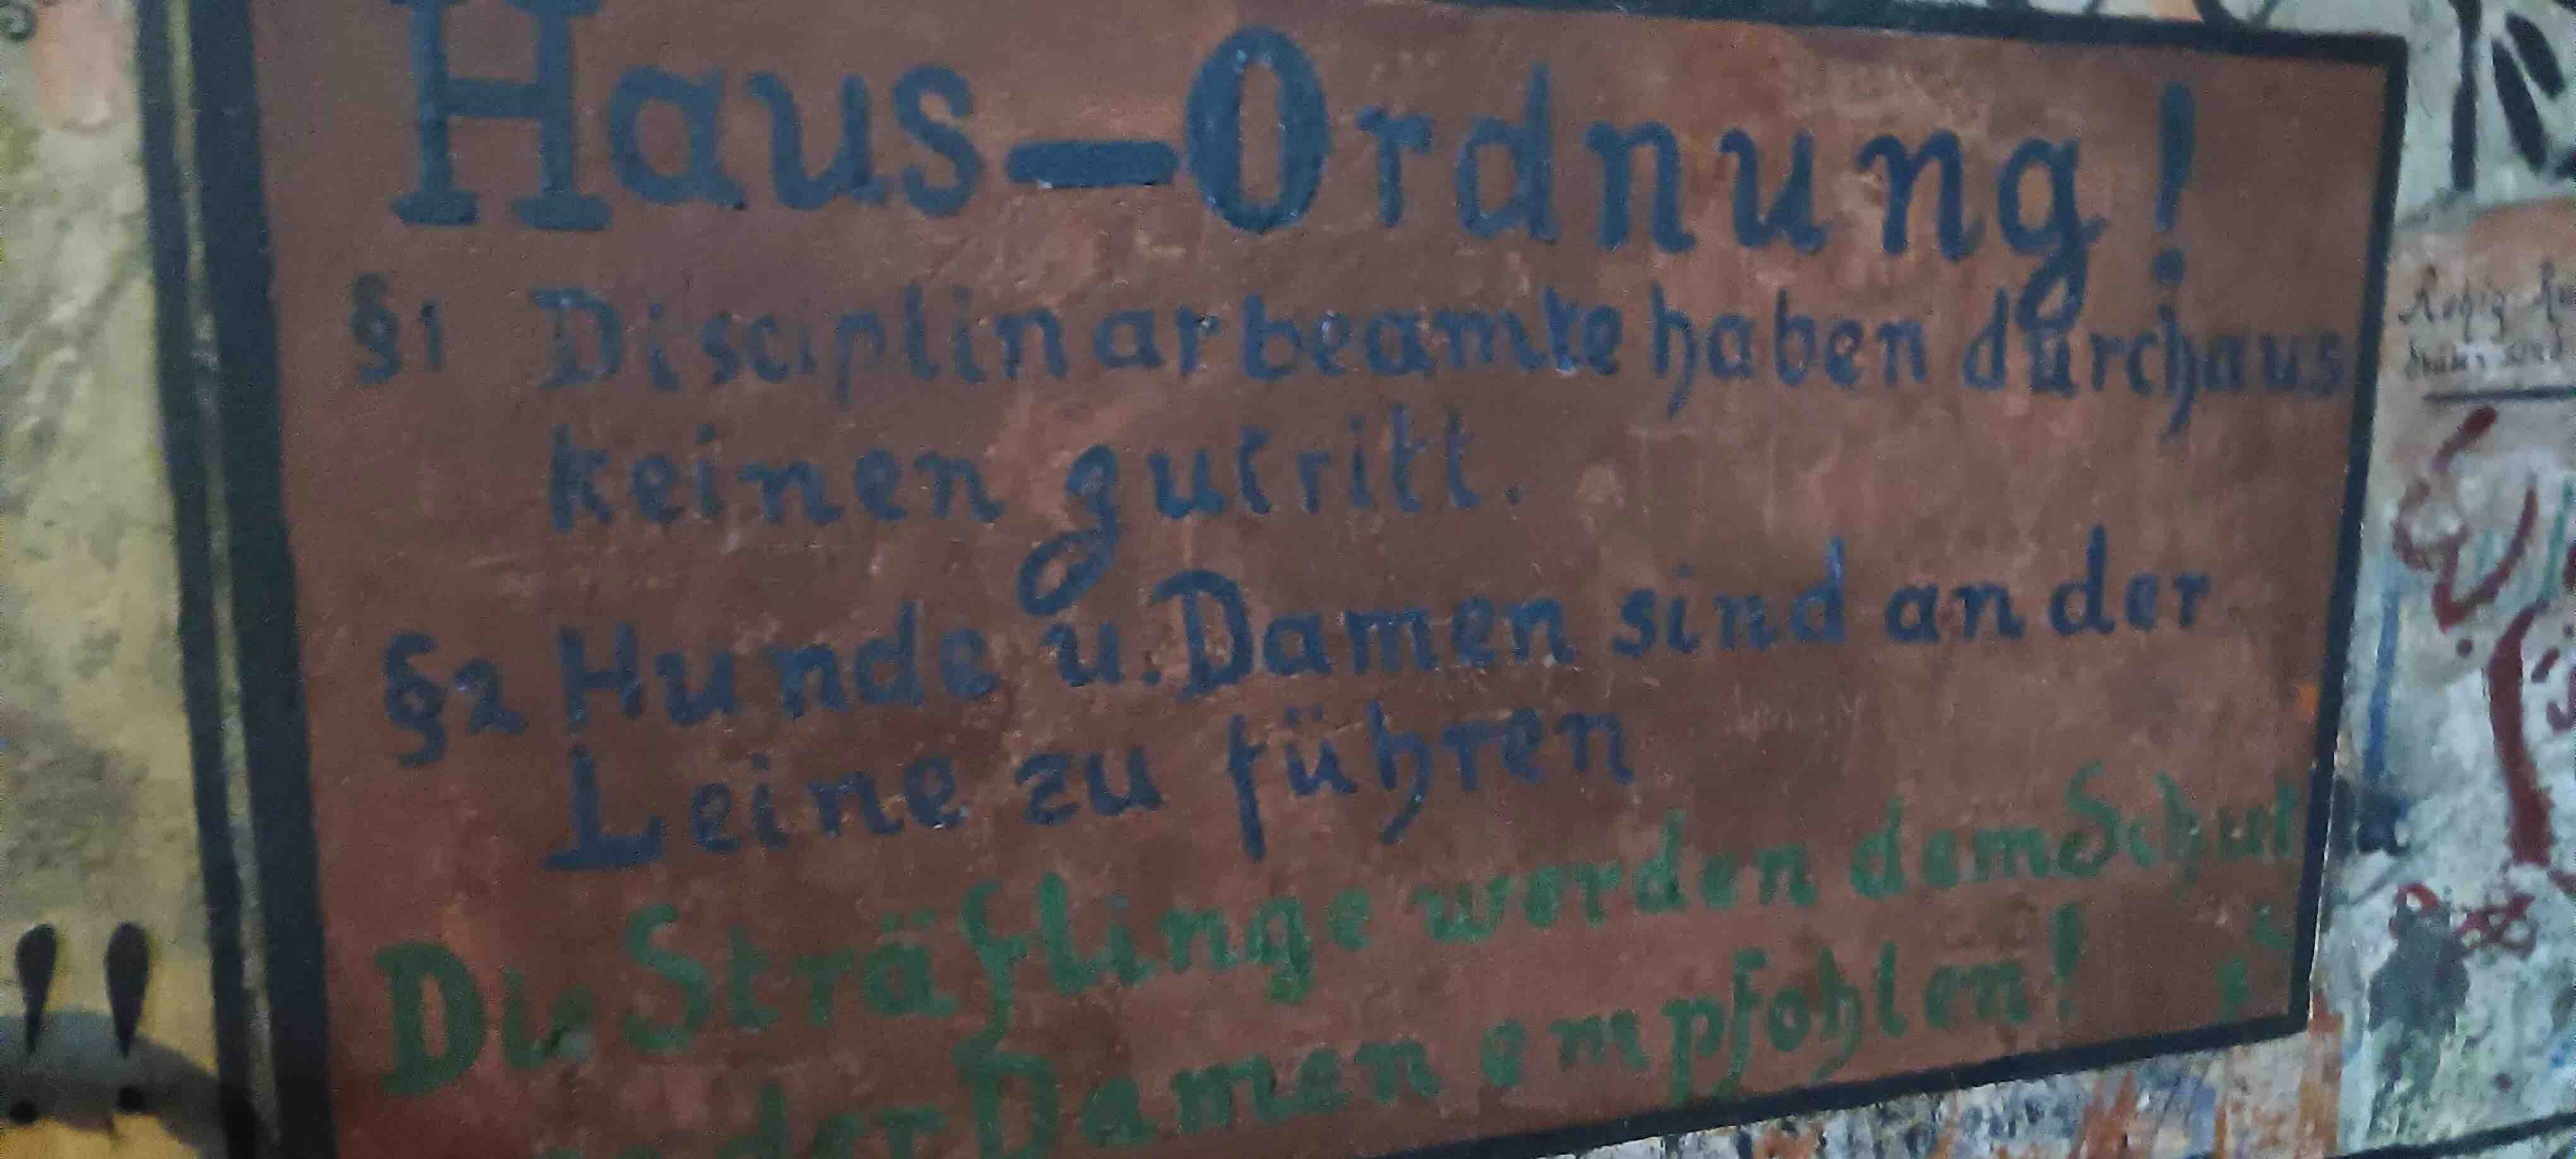 Haus-Ordnung!
§1 Disciplinarbeamte haben durchaus
keinen zutritt.
§2 Hunde u. Damen sind an der
Leine zu führen
Die Sträflinge werden dem Schutz
der Damen empfohlen!